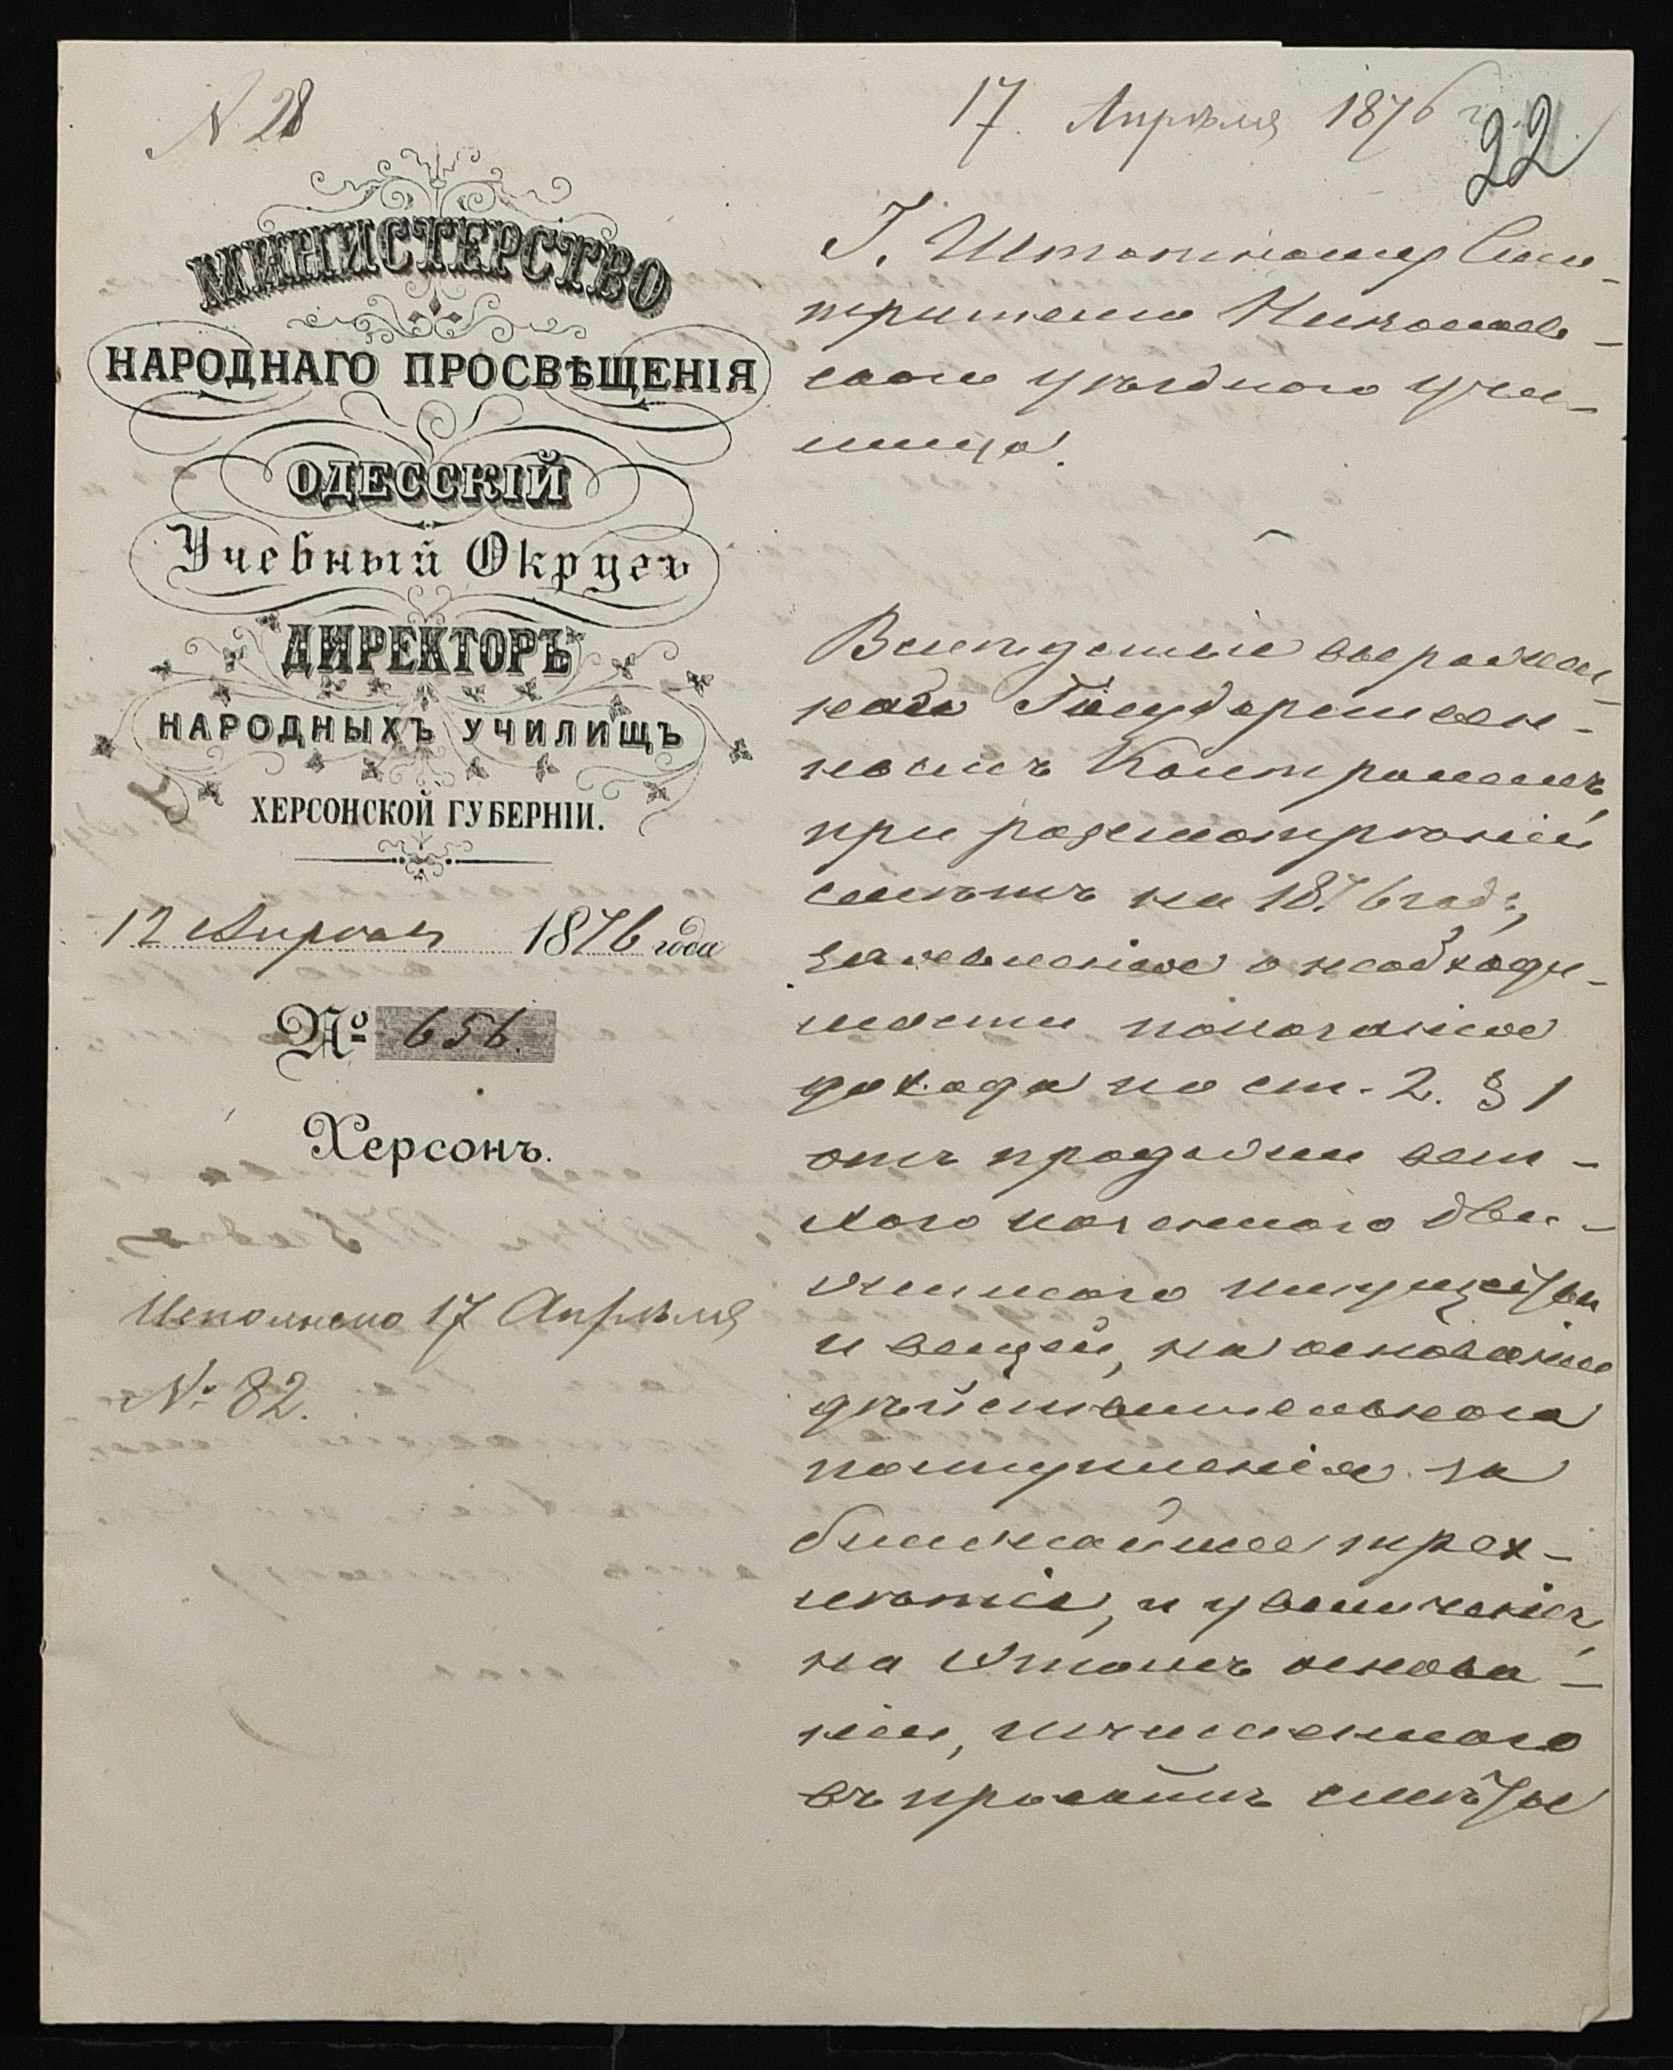 N 28
17 Апрѣля 1876 г.
22
МИНИСТЕРСТВО
НАРОДНАГО ПРОСВѢЩЕНІЯ
ОДЕССКІЙ
Учебный Округъ
ДИРЕКТОРЪ
НАРОДНЫХЪ УЧИЛИЩЪ
ХЕРСОНСКОЙ ГУБЕРНІИ.
12 Апрѣля 1876 года
№ 656.
Херсонъ.
Исполнено 17 Апрѣля
№ 82.
Г. Штатному Смо-
трителю Николаев-
скаго уѣзднаго учи-
лища.
Вслѣдствіе
Государствен-
нымъ Контролемъ,
при разсмотрѣніи
смѣтъ на 1876 годъ,
заявленія о необходи-
мости показанія
дохода по ст. 2. § 1
отъ продажи вет-
хаго казеннаго дви-
жимаго имущества
и вещей, на основаніи
дѣйствительнаго
поступленія за
ближайшее трех-
лѣтіе, и увеличенія,
на этомъ основа-
ніи, исчисленнаго
въ проэктѣ смѣты